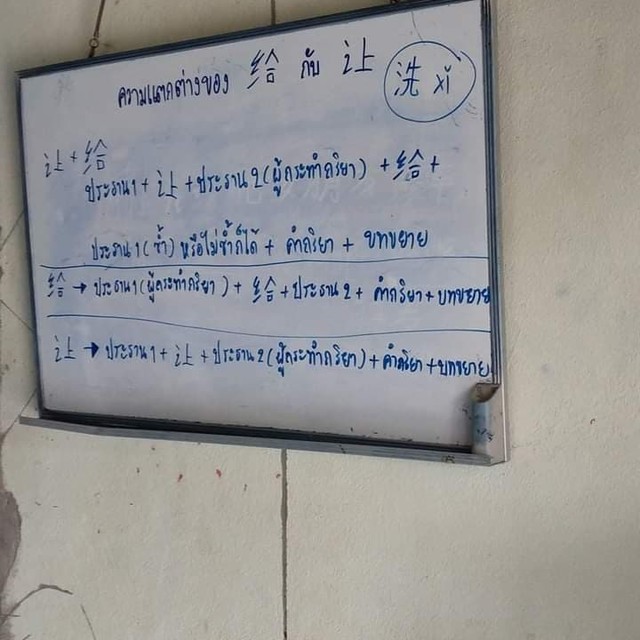 ความแตกต่างของ 给 กับ 让
洗 xǐ
让 + 给
ประธาน1 + 让 + ประธาน2(ผู้กระทำกริยา) + 给 +
ประธาน1(ซ้ำ) หรือไม่ซ้ำก็ได้ + คำกริยา + บทขยาย
给 → ประธาน1(ผู้กระทำกริยา) + 给 + ประธาน2 + คำกริยา + บทขยาย
让 → ประธาน1 + 让 + ประธาน2(ผู้กระทำกริยา) + คำกริยา + บทขยาย